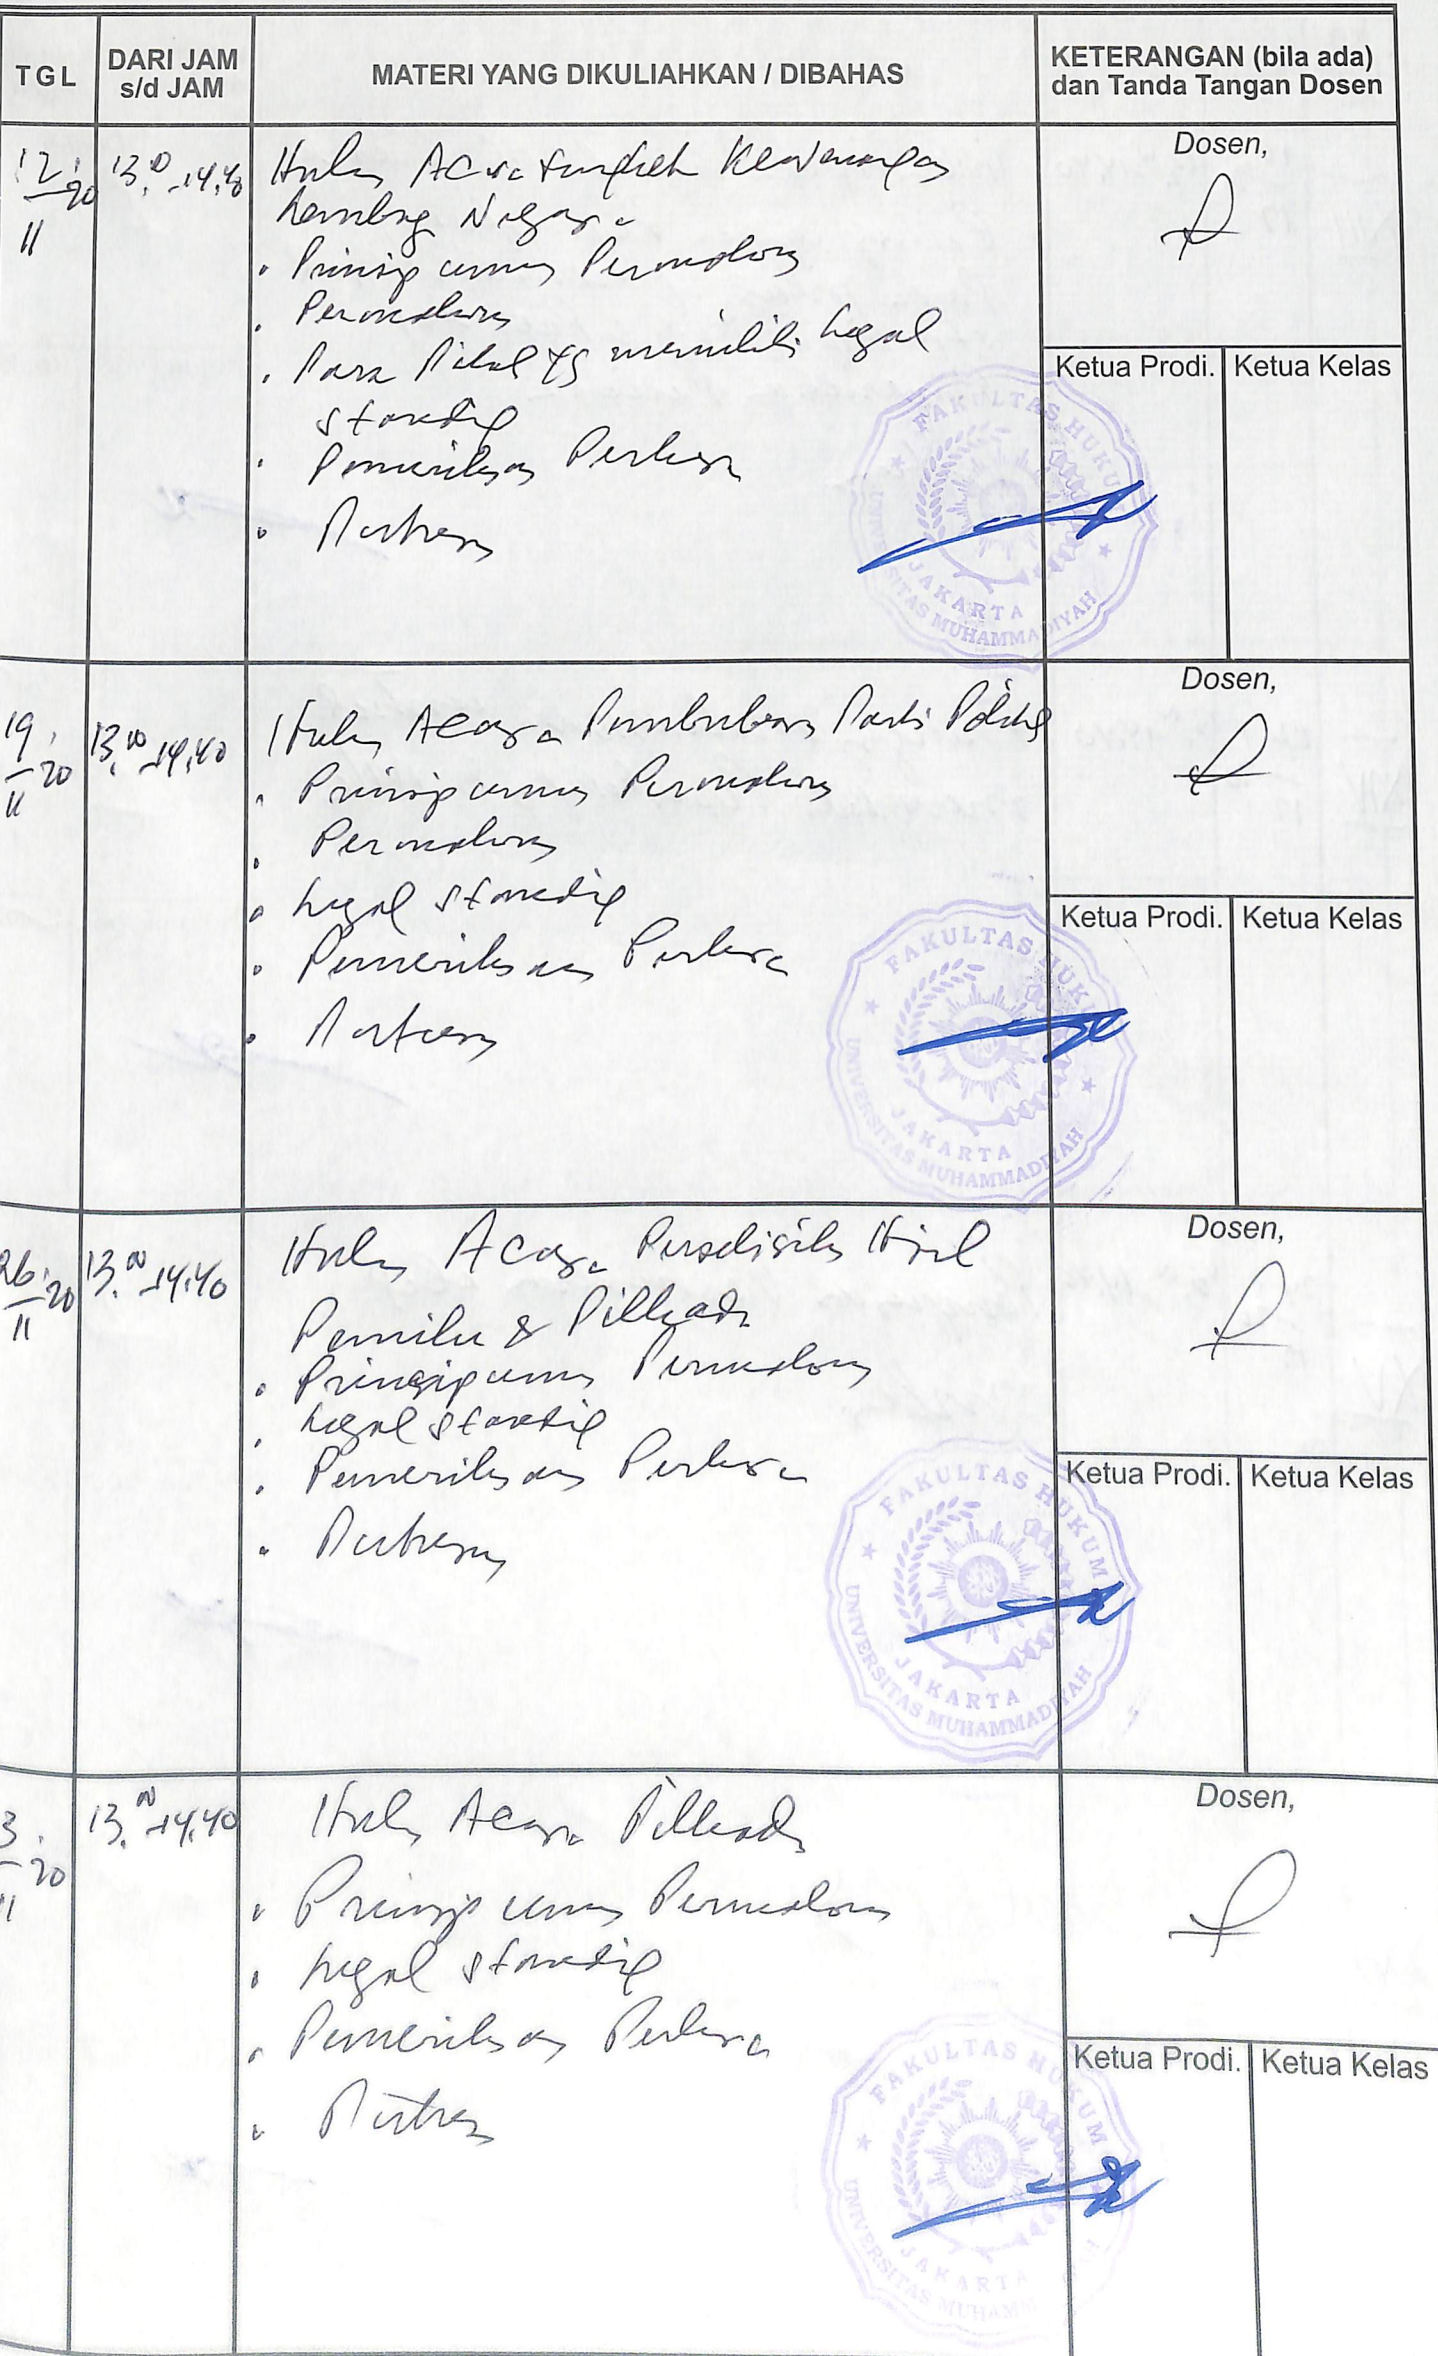 TGL
DARI JAM
s/d JAM
MATERI YANG DIKULIAHKAN / DIBAHAS
KETERANGAN (bila ada)
dan Tanda Tangan Dosen
12.
20
11
13.00 - 14.40
Hukum Acara Sengketa Kewenangan
Lembaga Negara
. Prinsip umum Permohonan
. Permohonan
. Para Pihak yg memiliki Legal
standing
. Pemeriksaan Perkara
. Putusan
Dosen,
Ketua Prodi.
Ketua Kelas
FAKULTAS HUKUM
JAKARTA
UNIVERSITAS MUHAMMADIYAH
19.
20
11
13.00 - 14.40
Hukum Acara Pembubaran Partai Politik
. Prinsip umum Permohonan
. Permohonan
. Legal standing
. Pemeriksaan Perkara
. Putusan
Dosen,
Ketua Prodi.
Ketua Kelas
FAKULTAS HUKUM
JAKARTA
UNIVERSITAS MUHAMMADIYAH
26.
20
11
13.00 - 14.40
Hukum Acara Perselisihan Hasil
Pemilu & Pilkada
. Prinsip umum Permohonan
. Legal standing
. Pemeriksaan Perkara
. Putusan
Dosen,
Ketua Prodi.
Ketua Kelas
FAKULTAS HUKUM
JAKARTA
UNIVERSITAS MUHAMMADIYAH
3.
20
11
13.00 - 14.40
Hukum Acara Pilkada
. Prinsip umum Permohonan
. Legal standing
. Pemeriksaan Perkara
. Putusan
Dosen,
Ketua Prodi.
Ketua Kelas
FAKULTAS HUKUM
JAKARTA
UNIVERSITAS MUHAMM